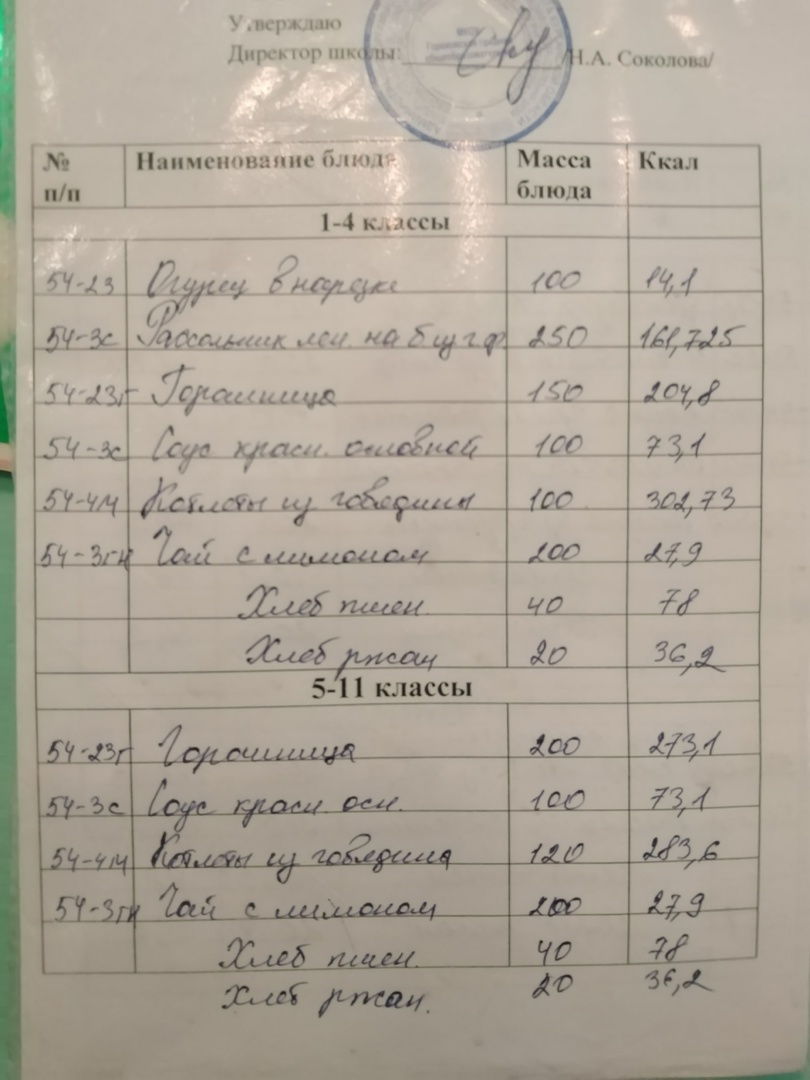 Утверждаю
Директор школы: /Н.А. Соколова/
№ п/п Наименование блюда Масса блюда Ккал
1-4 классы
54-23 Огурец в нарезке 100 14,1
54-3с Рассольник лен. на б 250 161,725
54-23г Горошница 150 204,8
54-3с Соус красн. основной 100 73,1
54-4м Котлеты из говядины 100 302,73
54-3гн Чай с лимоном 200 27,9
Хлеб пшен. 40 78
Хлеб ржан 20 36,2
5-11 классы
54-23г Горошница 200 273,1
54-3с Соус красн. осн. 100 73,1
54-4м Котлеты из говядина 120 283,6
54-3гн Чай с лимоном 200 27,9
Хлеб пшен. 40 78
Хлеб ржан. 20 36,2